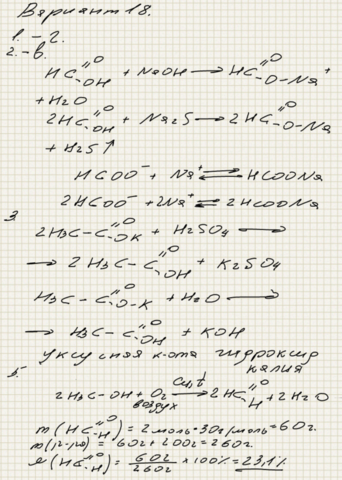 Вариант 18.
1. – 2.
2. – в.
HC(=O)OH + NaOH ⟶ HC(=O)O–Na⁺
+ H2O
2HC(=O)OH + Na2S ⟶ 2HC(=O)O–Na
+ H2S↑
HCOO⁻ + Na⁺ ⇌ HCOONa
2HCOO⁻ + 2Na⁺ ⇌ 2HCOONa
3. 2H3C–C(=O)OK + H2SO4 ⟶
⟶ 2H3C–C(=O)OH + K2SO4
H3C–C(=O)O–K + H2O ⟶
⟶ H3C–C(=O)OH + KOH
уксусная к-та гидроксид
калия
5. 2H3C–OH + O2 ⟶ 2HC(=O)H + 2H2O
Cu, t
воздух
m(HC(=O)H) = 2 моль · 30 г/моль = 60г.
m(р-ра) = 60г + 200г = 260г.
(HC(=O)–H) = 60г/260г × 100% = 23,1%